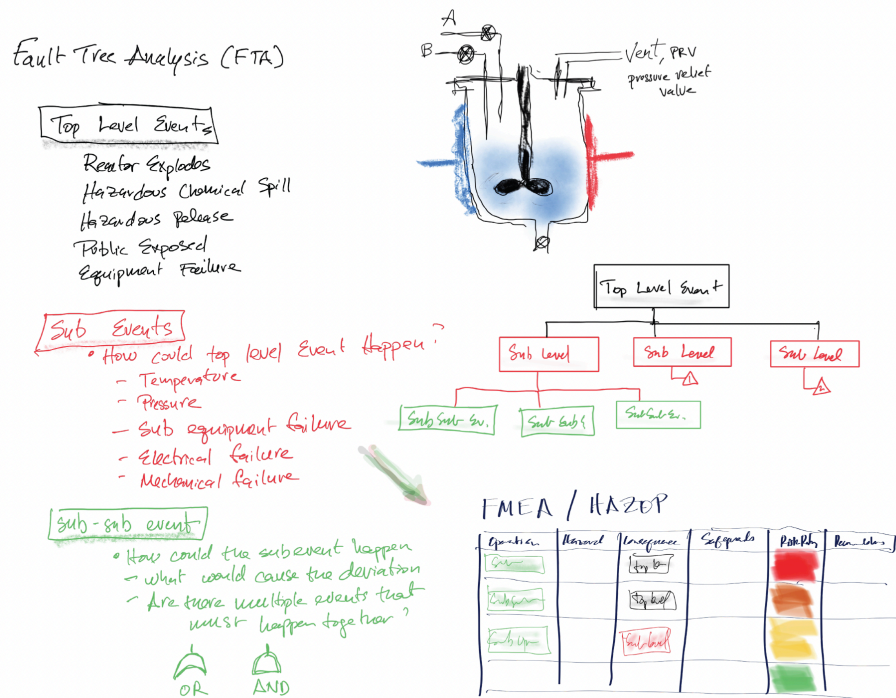 Fault Tree Analysis (FTA)
A
B
Vent, PRV
pressure relief
valve
Top Level Events
Reactor Explodes
Hazardous Chemical Spill
Hazardous Release
Public Exposed
Equipment Failure
Sub Events
• How could top level Event Happen?
- Temperature
- Pressure
- Sub equipment failure
- Electrical failure
- Mechanical failure
Sub-sub event
• How could the subevent happen
- What would cause the deviation
- Are there multiple events that
must happen together?
OR AND
Top Level Event
Sub Level
Sub Level
Sub Level
1
2
Sub Sub Ev.
Sub Sub E
Sub Sub Ev.
FMEA / HAZOP
Operation Hazard Consequence Safeguards
Top level
Sub level